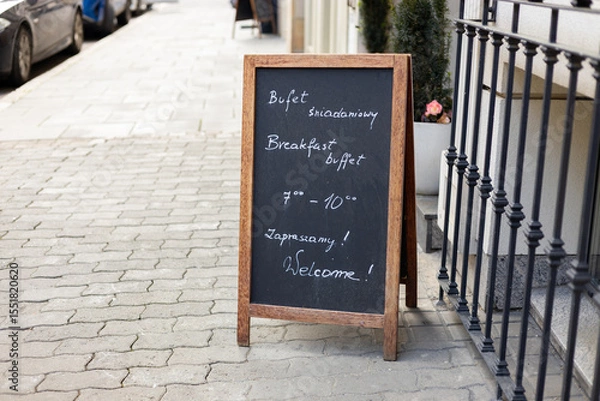 Bufet
śniadaniowy
Breakfast
buffet
7⁰⁰ - 10⁰⁰
Zapraszamy!
Welcome!
Adobe Stock | #1551820620